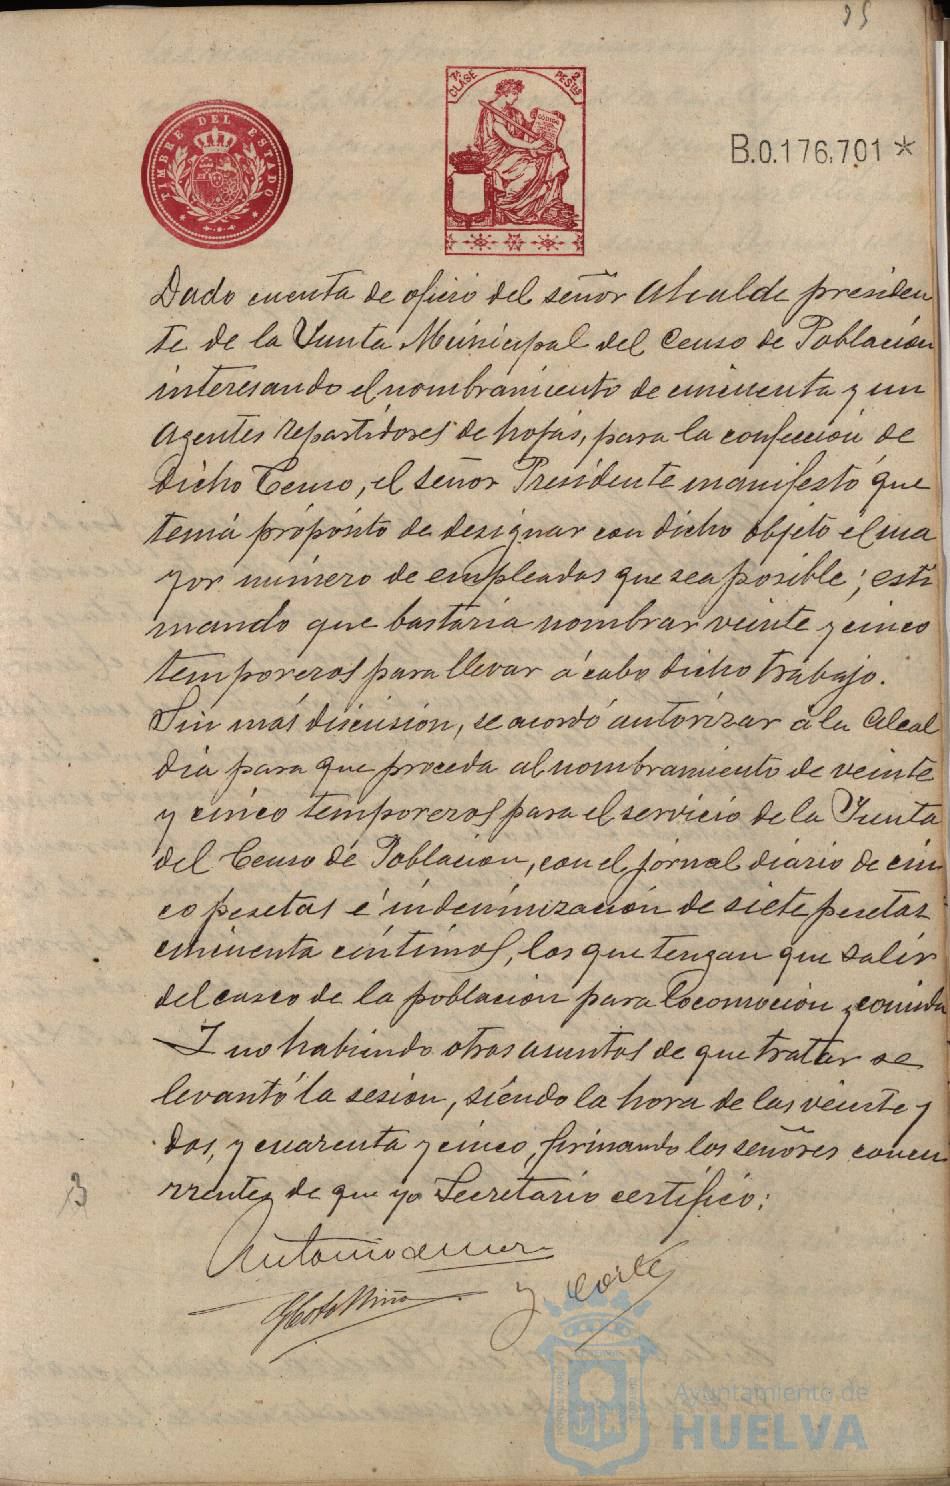 25
TIMBRE DEL ESTADO
7ª CLASE 2 PESTAS
CODIGO
B.0.176.701 *
Dado cuenta de oficio del señor Alcalde presiden
te de la Junta Municipal del Censo de Población
interesando el nombramiento de cincuenta y un
Agentes repartidores de hojas, para la confección de
dicho Censo, el señor Presidente manifestó que
tenia propósito de designar con dicho objeto el ma
yor número de empleados que sea posible; esti
mando que bastaria nombrar veinte y cinco
temporeros para llevar á cabo dicho trabajo.
Sin más discusión, se acordó autorizar á la Alcal
dia para que proceda al nombramiento de veinte
y cinco temporeros para el servicio de la Junta
del Censo de Población, con el jornal diario de cin
co pesetas é indemnización de siete pesetas
cincuenta céntimos, los que tengan que salir
del casco de la población para locomoción y comida
Y no habiendo otros asuntos de que tratar se
levantó la sesión, siendo la hora de las veinte y
dos, y cuarenta y cinco, firmando los señores concu
rrentes de que yo Secretario certifico:
Antonio de
Niño
Ayuntamiento de
HUELVA